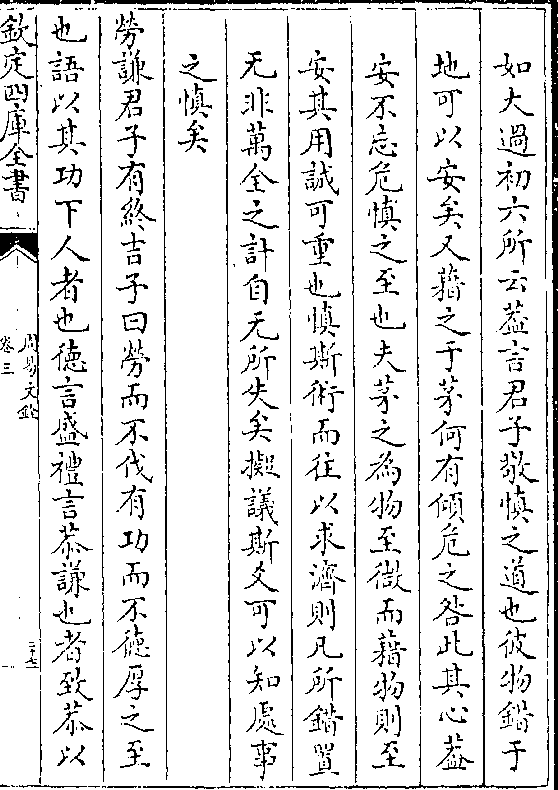 如大過初六所云葢言君子敬慎之道也彼物錯于
地可以安矣又藉之于茅何有傾危之咎此其心葢
安不忘危慎之至也夫茅之為物至微而藉物則至
安其用誠可重也慎斯術而往以求濟則凡所錯置
无非萬全之計自无所失矣擬議斯爻可以知處事
之慎矣
勞謙君子有終吉子曰勞而不伐有功而不徳厚之至
也語以其功下人者也徳言盛禮言恭謙也者致恭以
欽定四庫全書
周易文詮
卷三
三十七